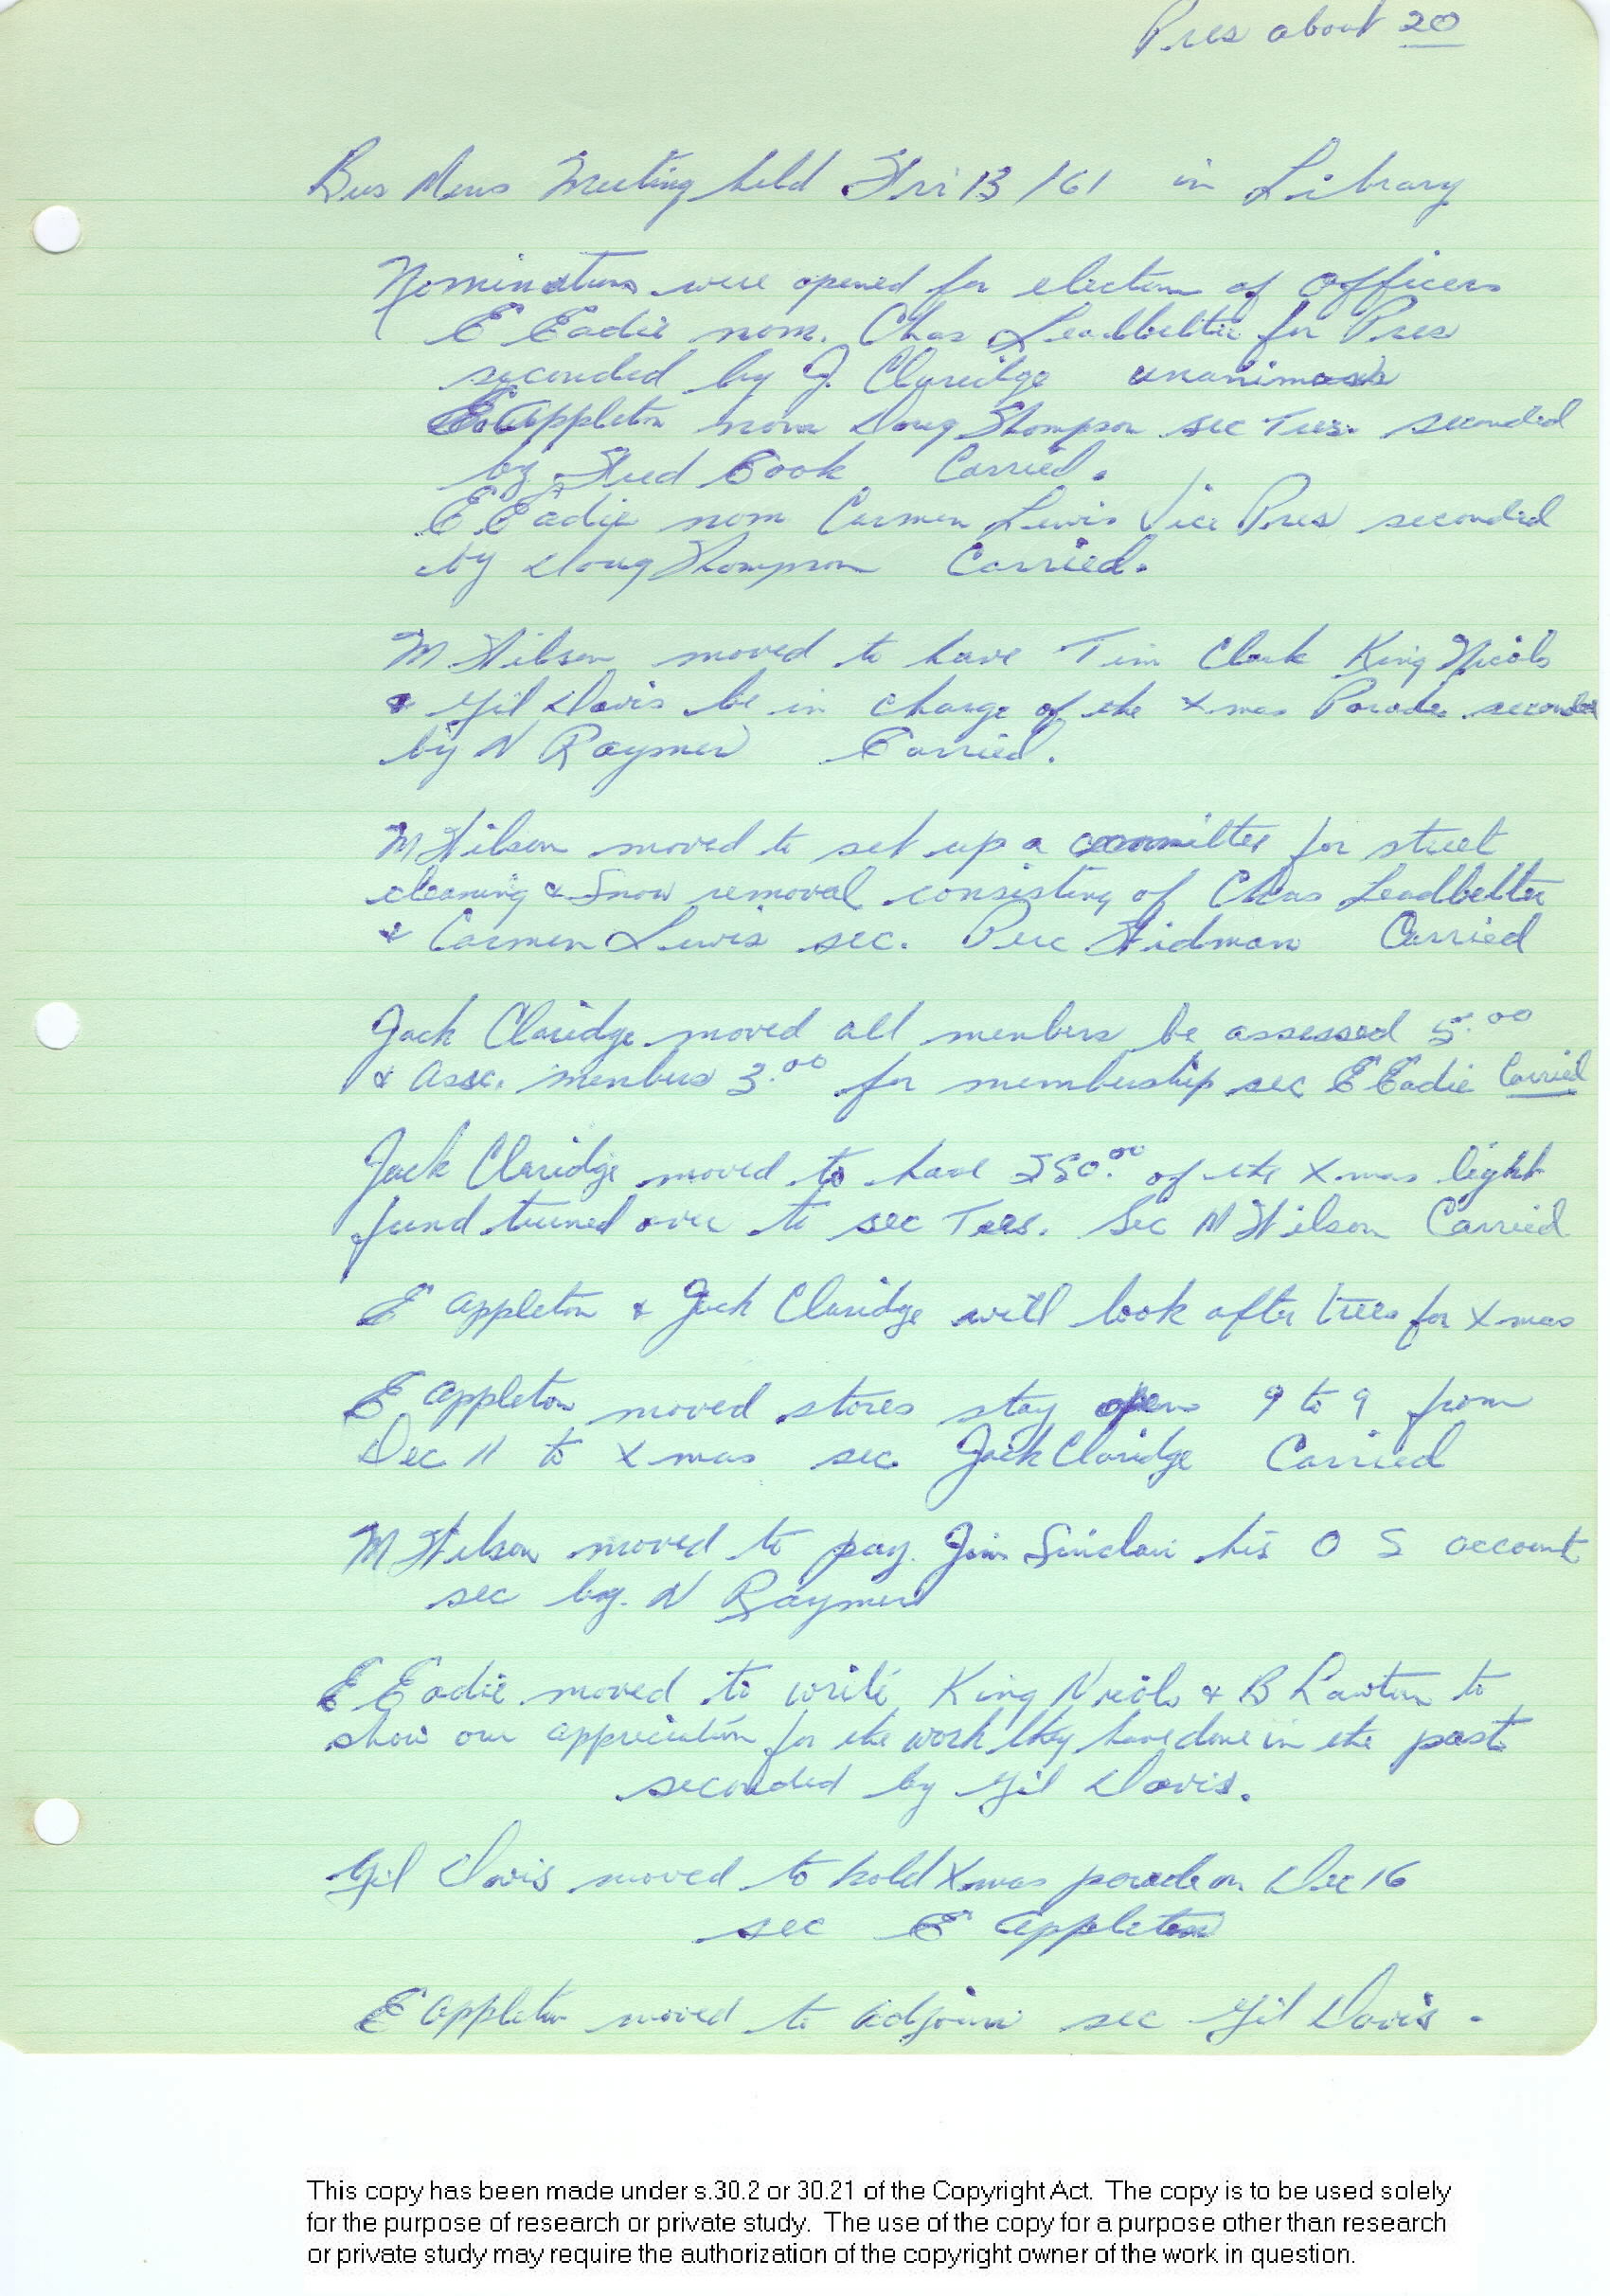 Pres about 20
Bus Mens Meeting held Fri 13 /61 in Library
Nominations were opened for election of officers
E Eadie nom. Chas Leadbetter for Pres
seconded by J. Claridge unanimous
E Appleton nom Doug Thompson sec Tres. seconded
by Fred Cook Carried.
E Eadie nom Carmen Lewis Vice Pres seconded
by Doug Thompson Carried.
M Wilson moved to have Tim Clark King Nicols
& Gil Davis be in charge of the Xmas Parade seconded
by N Raymer Carried.
M Wilson moved to set up a committee for street
cleaning & Snow removal consisting of Chas Leadbetter
& Carmen Lewis sec. Perc Widman Carried
Jack Claridge moved all members be assessed 5.00
& Assc. members 3.00 for membership sec E Eadie Carried
Jack Claridge moved to have of the Xmas light
fund turned over to sec Tres. Sec M Wilson Carried
E Appleton & Jack Claridge will look after trees for Xmas
E Appleton moved stores stay open 9 to 9 from
Dec 11 to Xmas sec. Jack Claridge Carried
M Wilson moved to pay Jim Sinclair his O S account
sec by. N Raymer
E Eadie moved to write King Nicols & B Lawton to
show our appreciation for the work they have done in the past
seconded by Gil Davis.
Gil Davis moved to hold Xmas parade on Dec 16
sec E Appleton
E Appleton moved to adjourn sec Gil Davis.
This copy has been made under s.30.2 or 30.21 of the Copyright Act. The copy is to be used solely
for the purpose of research or private study. The use of the copy for a purpose other than research
or private study may require the authorization of the copyright owner of the work in question.